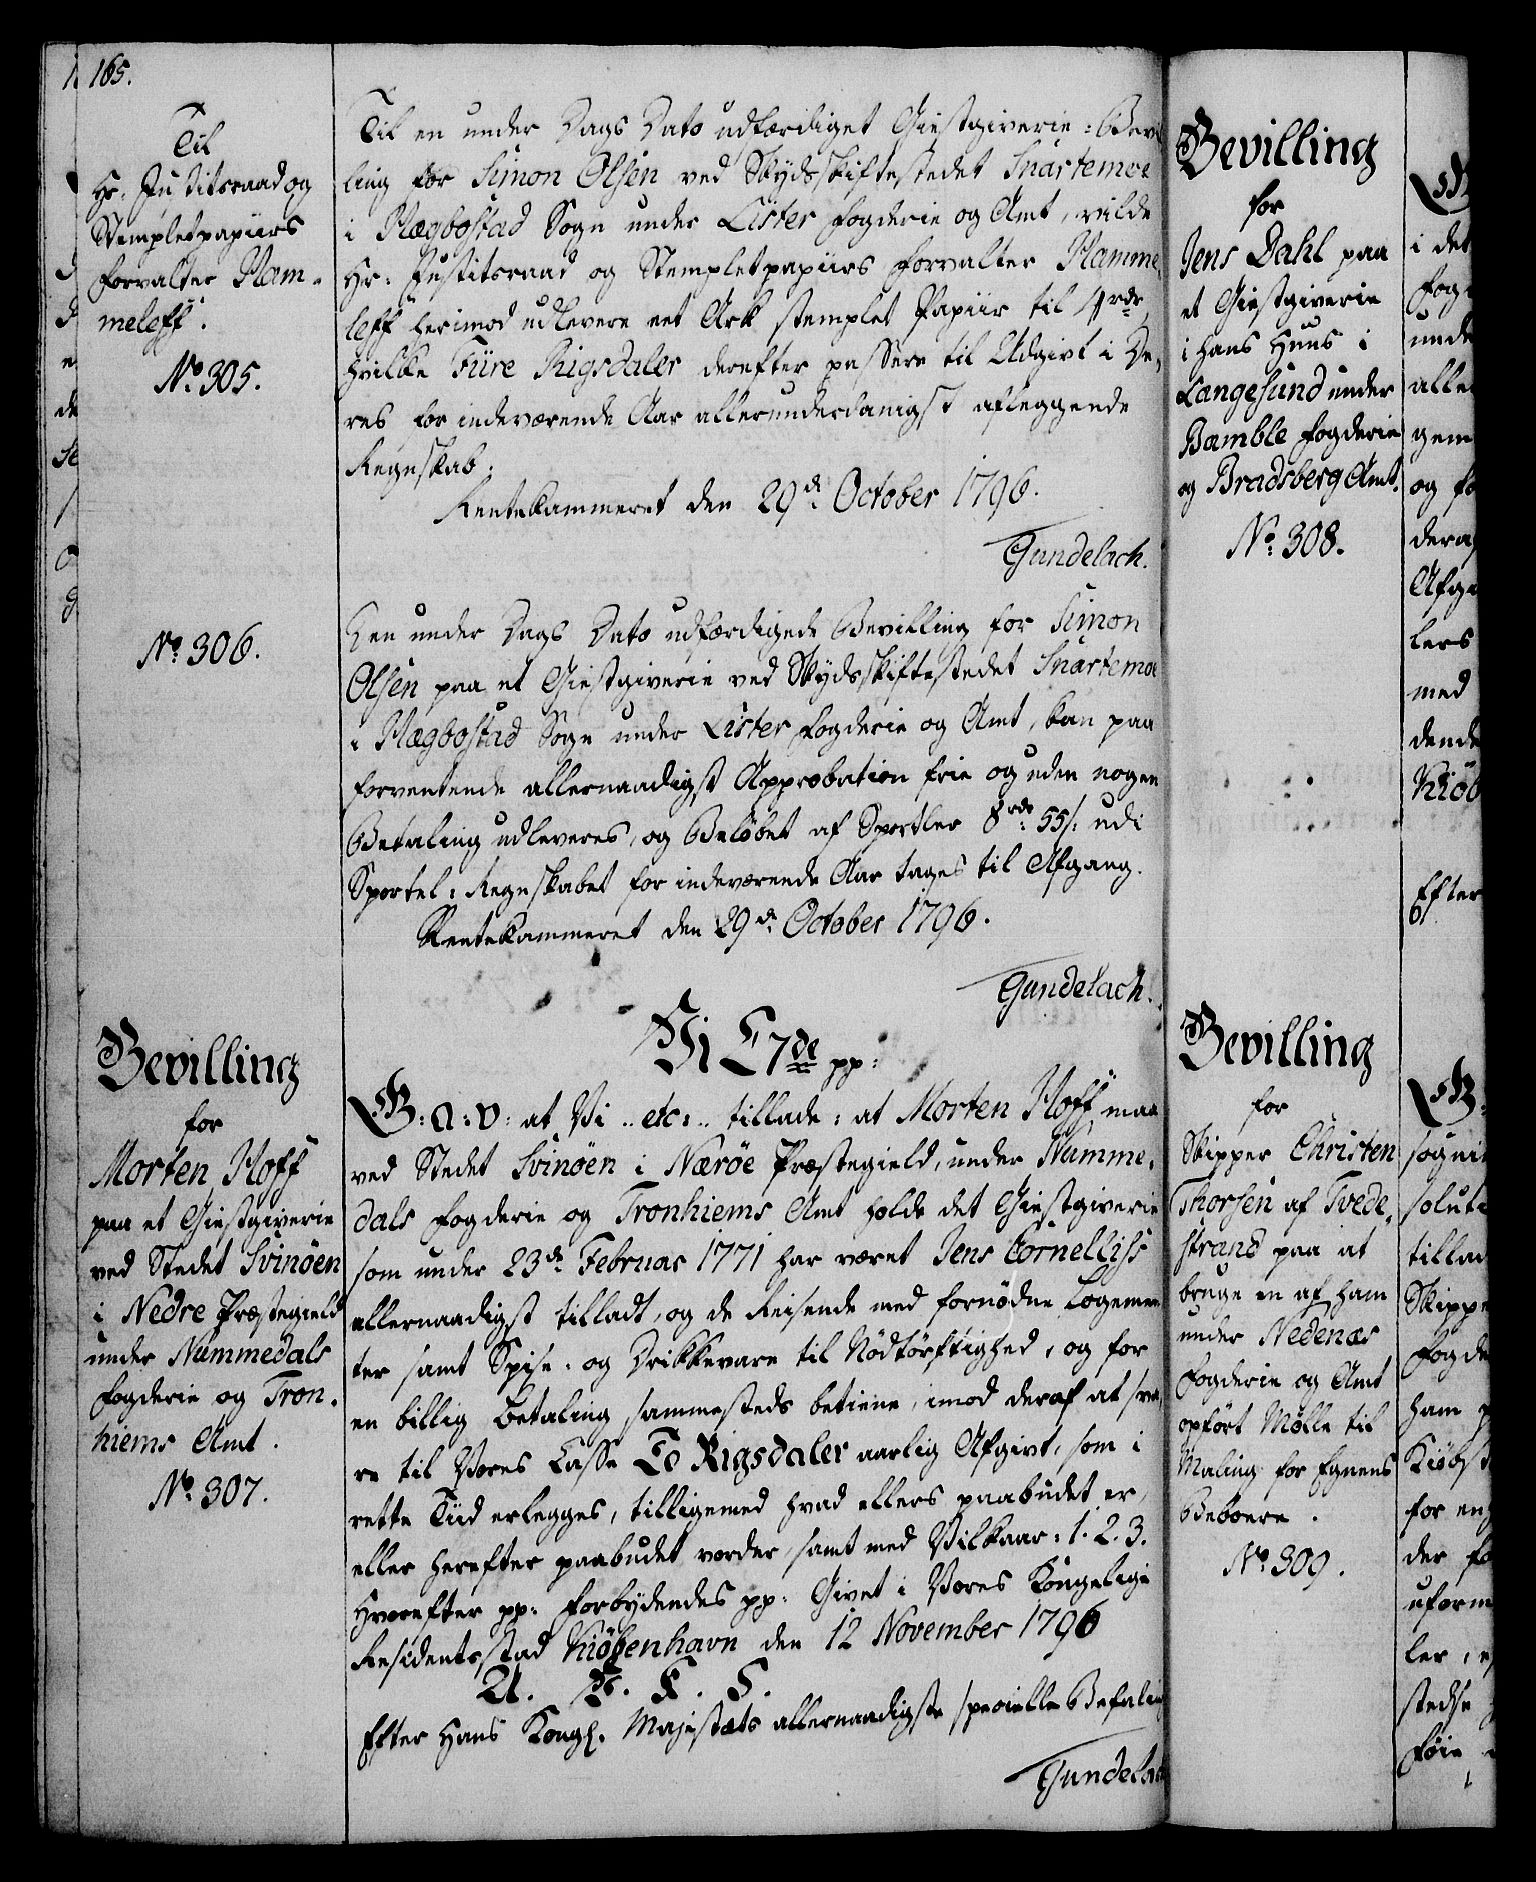 165.
Til
Hr. Justitsraad og
Stempletpapiirs
forvalter Ham-
meleff.
No. 305.
Til en under Dags Dato udfærdiget Giestgiverie: Bevil
ling for Simon Olsen ved Skydsskiftestedet Snartemoe
i Hægbostad Sogn under Lister Fogderie og Amt, vilde
Hr: Justitsraad og Stempletpapiirs forvalter Hamme,
leff herimod udlevere eet Ark stemplet Papiir til 4 rdr,
hvilke Fiire Rigsdaler derefter passere til Udgivt i De,
res for indeværende Aar allerunderdanigst aflæggende
Regnskab.
Rentekammeret den 29de October 1796.
Gundelach.
No. 306.
Den under Dags Dato udfærdigede Bevilling for Simon
Olsen paa et Giestgiverie ved Skydsskiftestedet Snartemoe
i Hægbostad Sogn under Lister Fogderie og Amt, kan paa
forventende allernaadigst Approbation frie og uden nogen
Betaling udleveres, og Beløbet af Sportler 8 rdr 55 s. udi
Sportel: Regnskabet for indeværende Aar tages til Afgang.
Rentekammeret den 29de October 1796.
Gundelach.
Bevilling
for
Morten Hoff
paa et Giestgiverie
ved Stedet Svinöen
i Nedre Præstegield
under Nummedals
Fogderie og Tron-
hiems Amt.
No. 307.
Vi C 7de pp:
G: A: V: at Vi .. etc: .. tillade: at Morten Hoff maa
ved Stedet Svinöen i Nærøe Præstegield, under Numme,
dals Fogderie og Tronhiems Amt holde det Giestgiverie
som under 23de Februar 1771 har været Jens Cornelliss
allernaadigst tilladt, og de Reisende med fornødne Logemen
ter samt Spise- og Drikkevare til Nödtörftighed, og for
en billig Betaling sammesteds betiene, imod deraf at sva,
re til Vores Casse To Rigsdaler aarlig Afgivt, som i
rette Tiid erlegges, tilligemed hvad ellers paabudet er,
eller herefter paabudet vorder, samt med Vilkaar: 1. 2. 3.
Hvorefter pp. Forbydendes pp. Givet i Vores Kongelige
Residentsstad Kiöbenhavn den 12 November 1796
U. T. K. S.
Efter Hans Kongl. Majestæts allernaadigste specielle Befaling
Gundelach
Bevilling
for
Jens Dahl paa
et Giestgiverie
i hans Huus i
Langesund under
Bamble Fogderie
og Bradsberg Amt.
No. 308.
Bevilling
for
Skipper Christen
Thorsen af Tvede,
strand paa at
bruge en af ham
under Nedenæs
Fogderie og Amt
opfört Mölle til
Maling for Egnens
Beboere.
No. 309.
i det
Fog
unde
alle
gem
og fo
dera
Afgi
lers
med
dende
Kiöb
Efter
sogni
solut
tillad
Skippe
Fogde
ham
Kiöbst
for en
der
uform
ler,
stedse
Föie